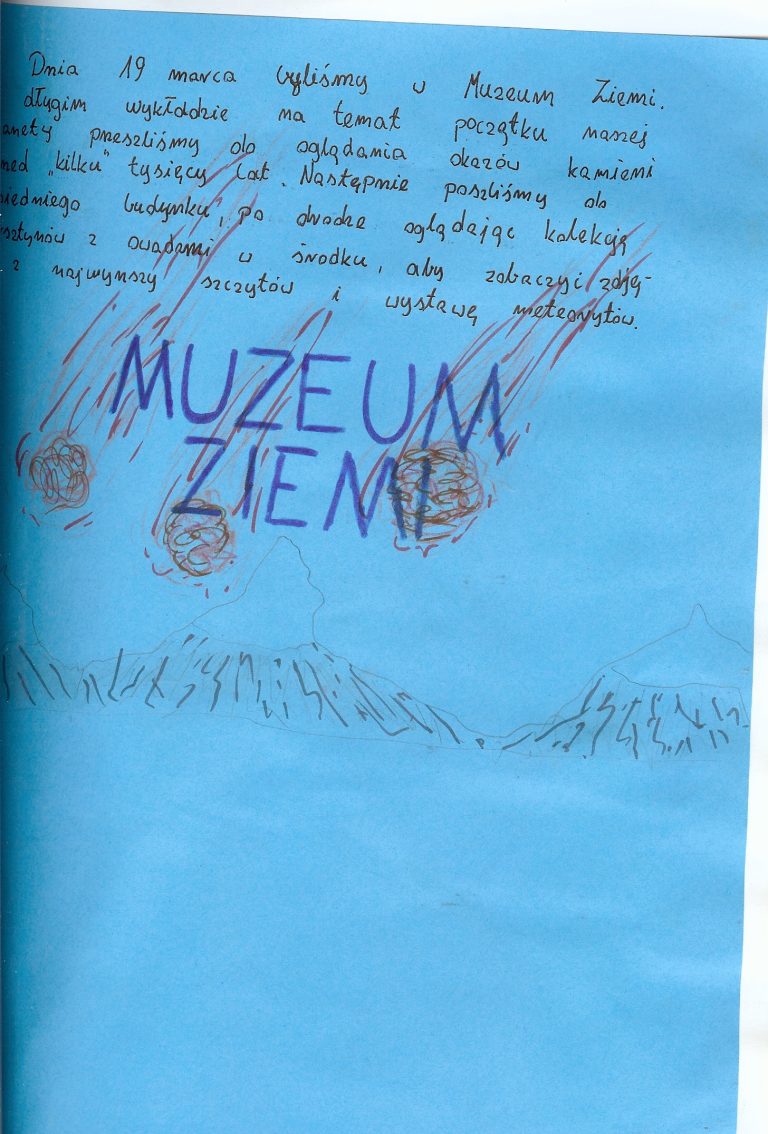 Dnia 19 marca byliśmy w Muzeum Ziemi.
długim wykładzie na temat początku naszej
anety przeszliśmy do oglądania okazów kamieni
zed „kilku" tysięcy lat. Następnie poszliśmy do
siedniego budynku, po drodze oglądając kolekcję
sztynów z owadami w środku, aby zobaczyć zdję-
z najwyższy szczytów i wystawę meteorytów.
MUZEUM
ZIEMI